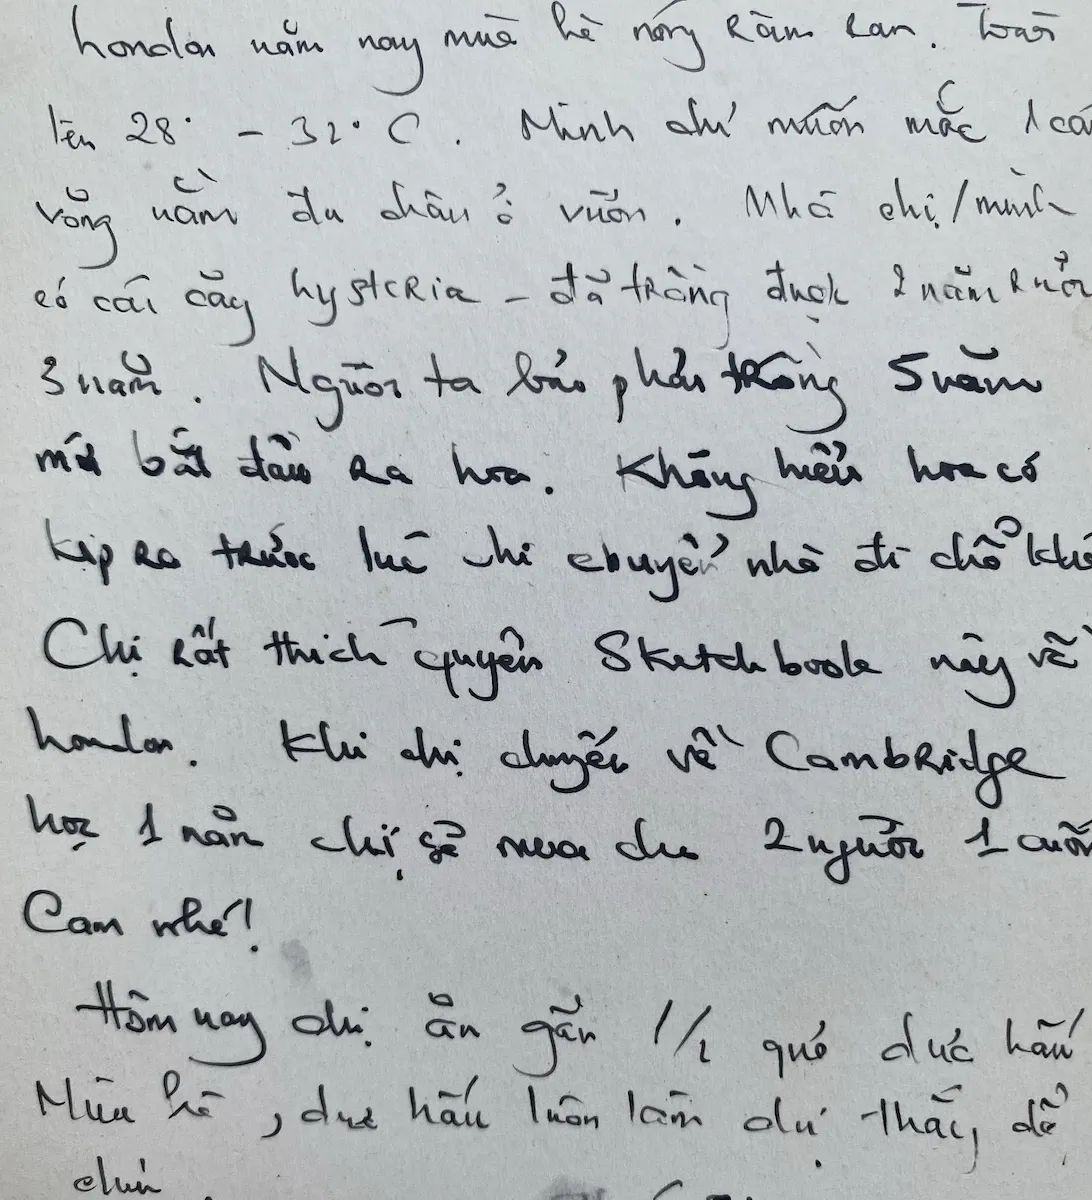 London năm nay mùa hè nóng ran ran. Trời
lên 28° - 32° C. Mình chỉ muốn mắc 1 cái
võng nằm đu chân ở vườn. Nhà chị/mình
có cái cây hysteria - đã trồng được 2 năm rưỡi
3 năm. Người ta bảo phải trồng 5 năm
mới bắt đầu ra hoa. Không hiểu hoa có
kịp ra trước lúc chị chuyển nhà đi chỗ khá
Chị rất thích quyển Sketchbook này về
London. Khi chị chuyển về Cambridge
học 1 năm chị sẽ mua cho 2 người 1 cuốn
Cam nhé!
Hôm nay chị ăn gần 1/2 quả dưa hấu
Mùa hè, dưa hấu luôn làm chị thấy dễ
chịu